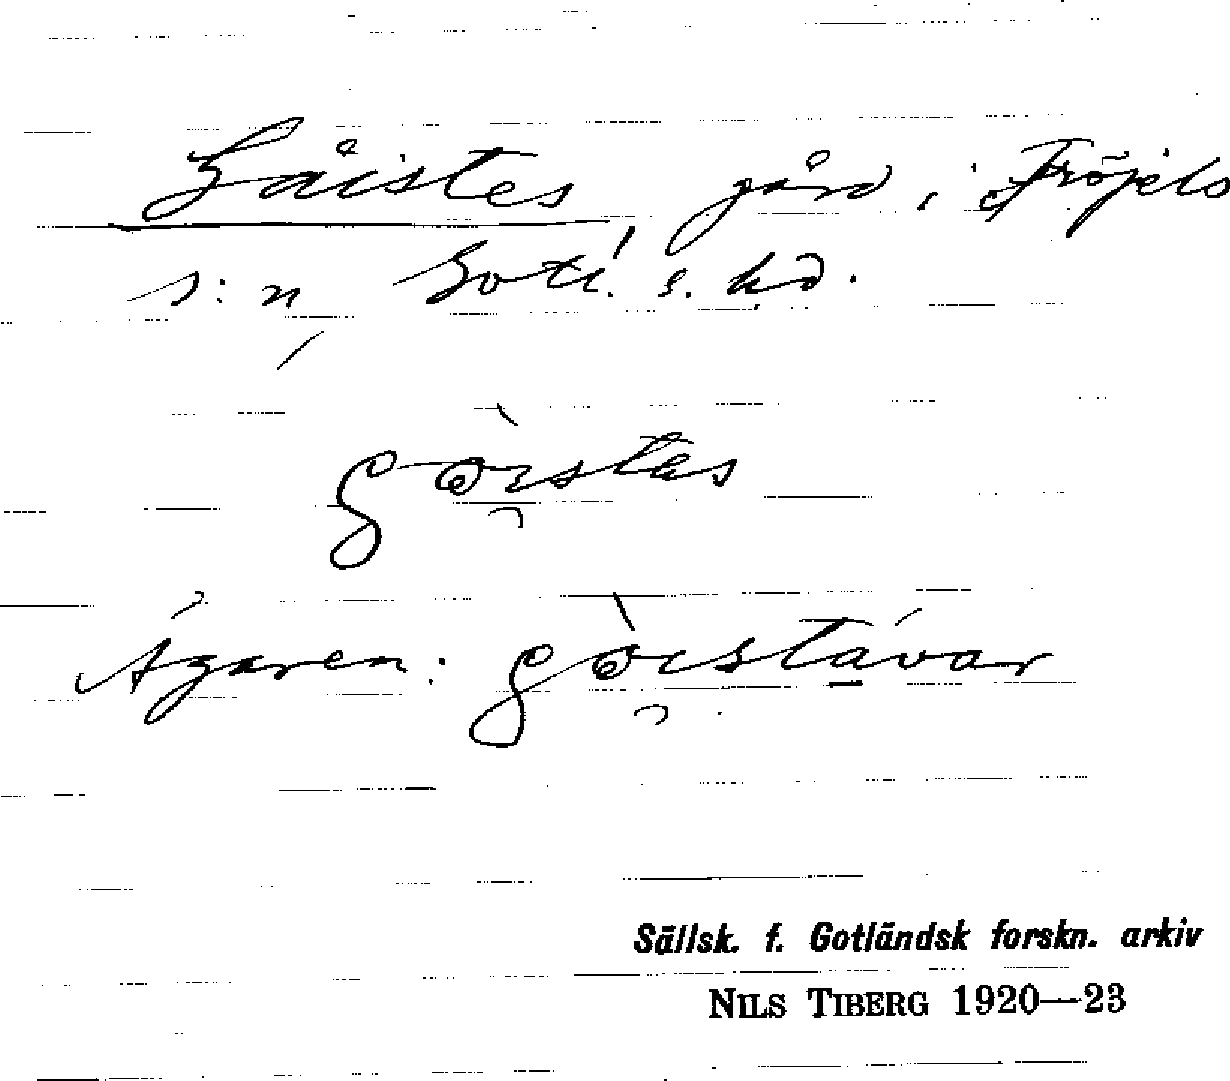 Gåistes, gård i Fröjels
s:n, Gotl. s. hd.
gòistas
Ägaren: gòistávar
Sällsk. f. Gotländsk forskn. arkiv
NILS TIBERG 1920—23